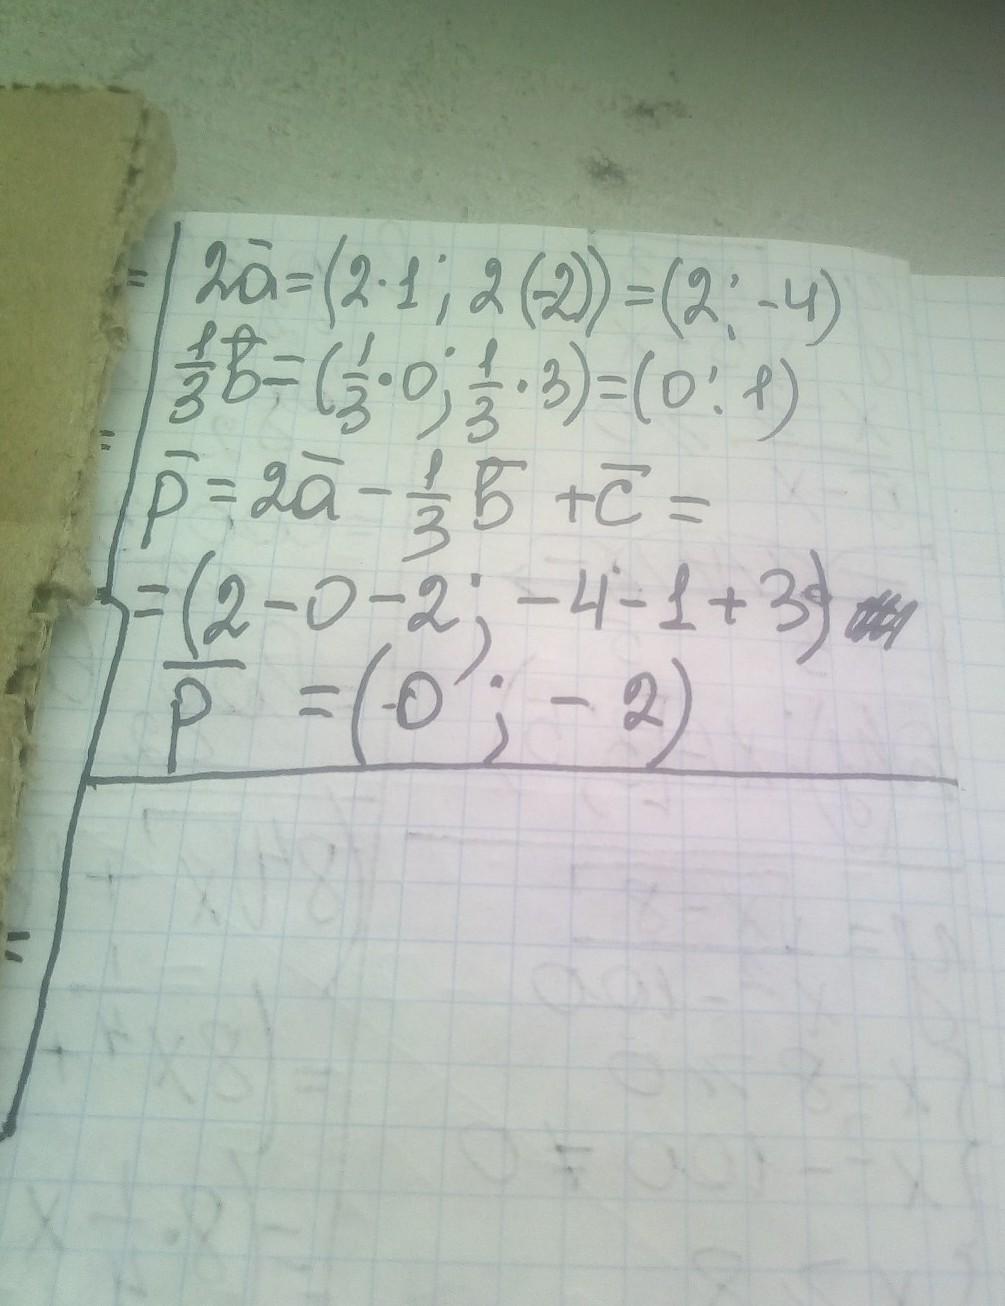 2a̅ = (2·1; 2(-2)) = (2; -4)
1/3 b̅ = (1/3·0; 1/3·3) = (0; 1)
p̅ = 2a̅ - 1/3 b̅ + c̅ =
= (2-0-2; -4-1+3)
p̅ = (0; -2)